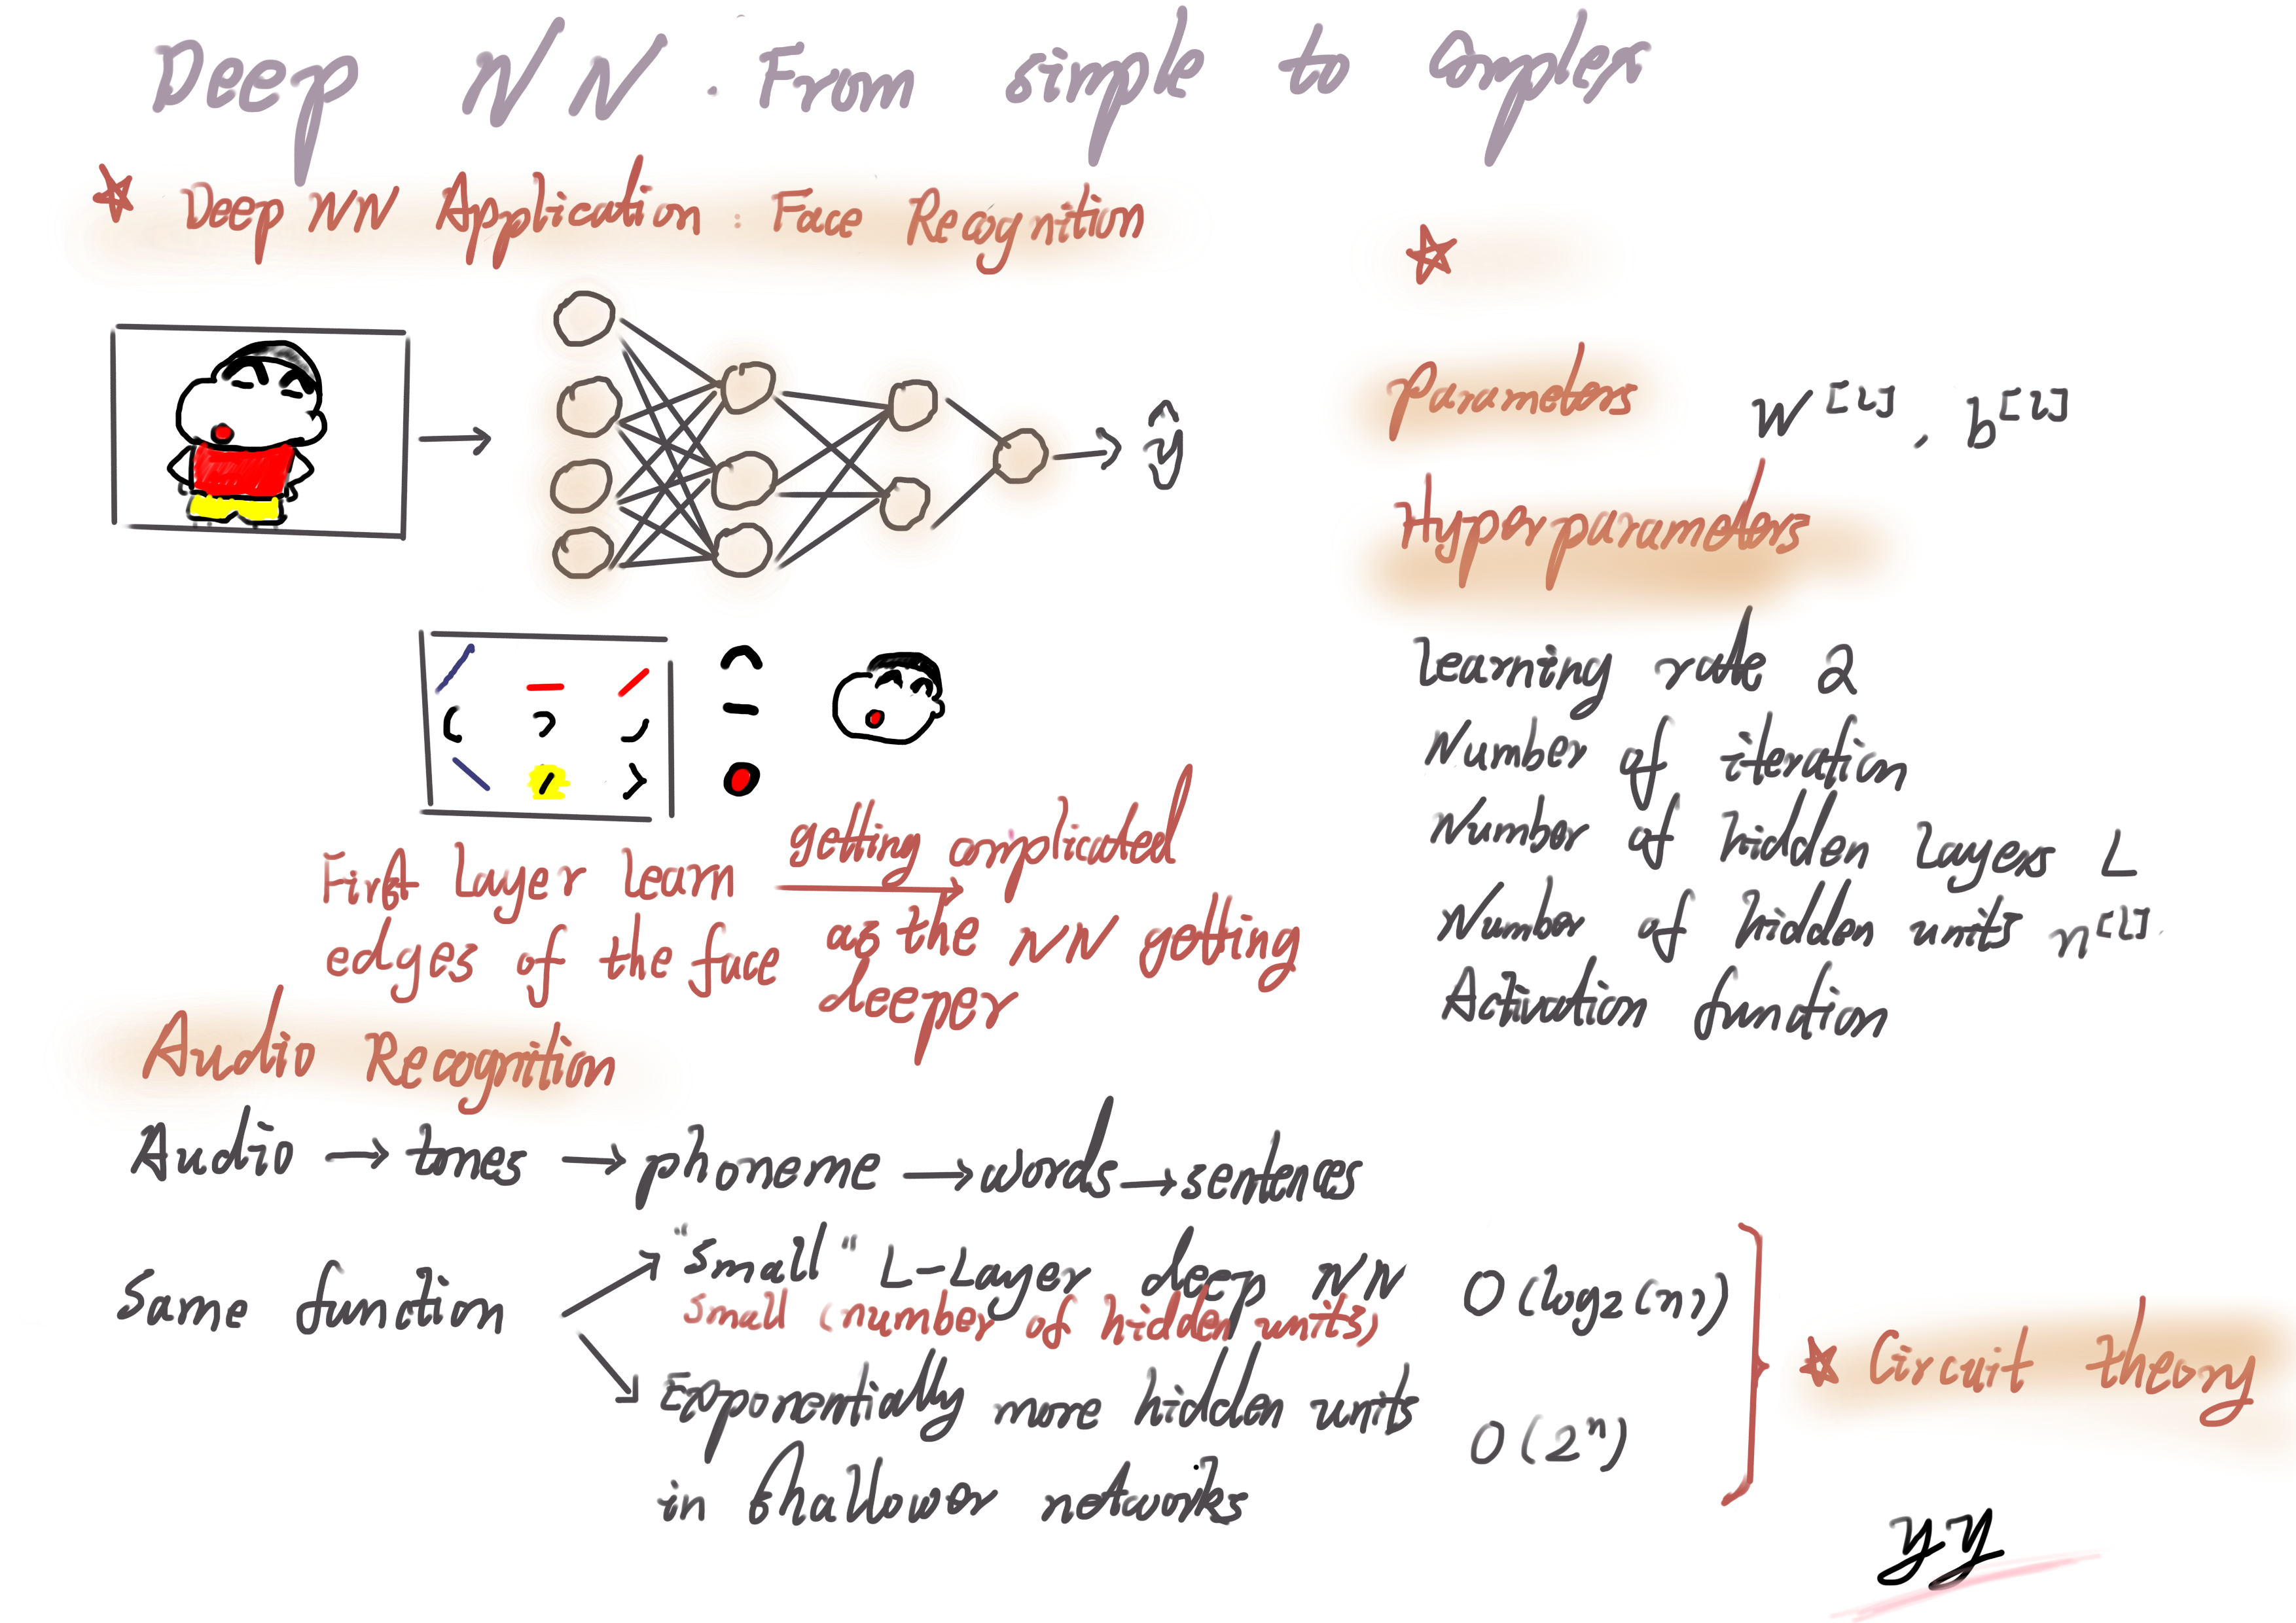 Deep NN . From simple to complex
Deep NN Application : Face Recognition
ŷ
First Layer learn
edges of the face
getting complicated
as the NN getting
deeper
Audio Recognition
Audio → tones → phoneme → words → sentences
Same function
"small" L-Layer deep NN O(log2(n))
small (number of hidden units)
Exponentially more hidden units
in shallower networks
O(2^n)
Circuit theory
Parameters W^[l], b^[l]
Hyperparameters
learning rate α
Number of iteration
Number of hidden layers L
Number of hidden units n^[l]
Activation function
yy